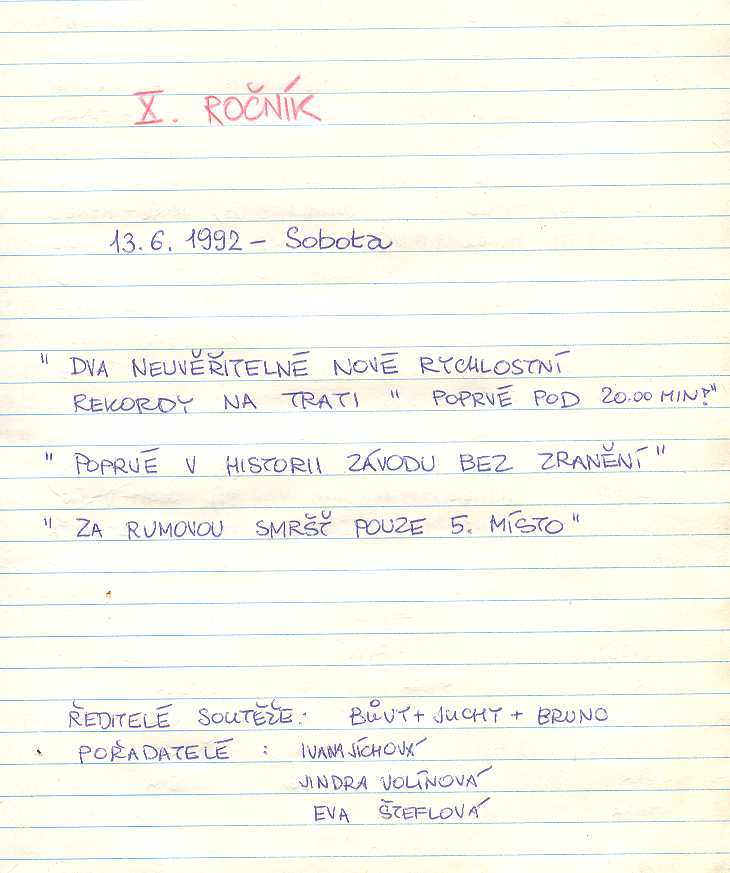 X. ROČNÍK
13.6. 1992 - Sobota
" DVA NEUVĚŘITELNÉ NOVÉ RYCHLOSTNÍ
REKORDY NA TRATI " POPRVÉ POD 20.00 MIN!"
" POPRVÉ V HISTORII ZÁVODU BEZ ZRANĚNÍ "
" ZA RUMOVOU SMRŠŤ POUZE 5. MÍSTO "
ŘEDITELÉ SOUTĚŽE: BŮVY + JUCHY + BRUNO
POŘADATELÉ : IVANA JÍCHOVÁ
JINDRA VOLÍNOVÁ
EVA ŠTEFLOVÁ